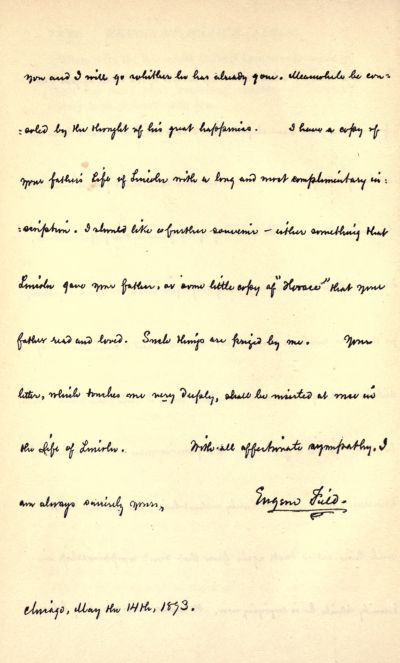 you and I will go whither he has already gone. Meanwhile be con-
-soled by the thought of his great happiness. I have a copy of
your father's Life of Lincoln with a long and most complimentary in-
-scription. I should like a further souvenir – either something that
Lincoln gave your father, or some little copy of "Horace" that your
father read and loved. Such things are prized by me. Your
letter, which touches me very deeply, shall be inserted at once in
the Life of Lincoln. With all affectionate sympathy, I
am always sincerely yours,
Eugene Field.
Chicago, May the 14th, 1893.